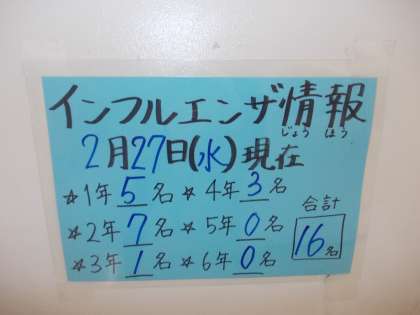 インフルエンザ情報
じょう ほう
2月27日(水)現在
☆1年5名 ☆4年3名
☆2年7名 ☆5年0名
☆3年1名 ☆6年0名
合計
16名